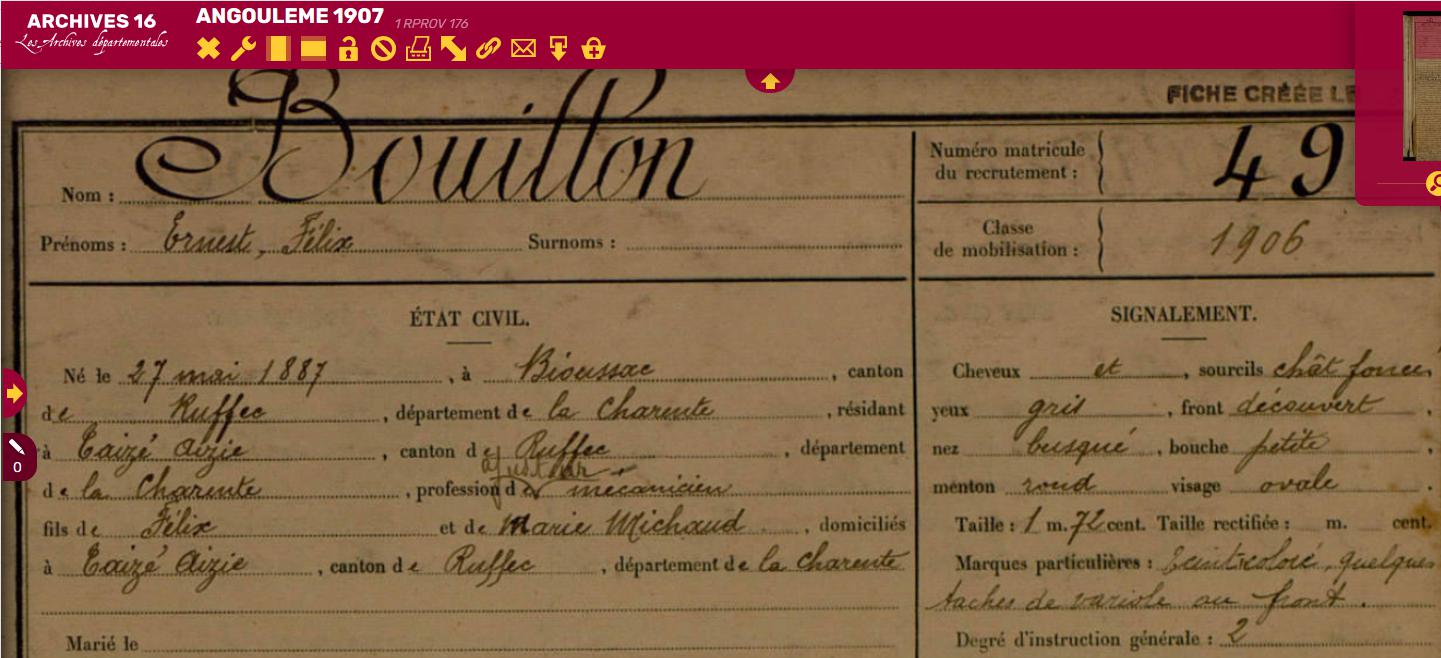 ARCHIVES 16
Les Archives départementales
ANGOULEME 1907 1 RPROV 176
FICHE CRÉÉE LE
Nom : Bouillon
Prénoms : Ernest, Félix Surnoms :
Numéro matricule du recrutement : 49
Classe de mobilisation : 1906
ÉTAT CIVIL.
Né le 27 mai 1887, à Bioussac, canton
de Ruffec, département de la Charente, résidant
à Taizé Aizie, canton de Ruffec, département
ajusteur
de la Charente, profession de mécanicien
fils de Félix et de Marie Michaud, domiciliés
à Taizé Aizie, canton de Ruffec, département de la Charente
Marié le
SIGNALEMENT.
Cheveux et, sourcils chât foncés
yeux gris, front découvert,
nez busqué, bouche petite,
menton rond visage ovale.
Taille : 1 m. 72 cent. Taille rectifiée : m. cent.
Marques particulières : teint coloré, quelques
taches de variole au front.
Degré d'instruction générale : 2
0